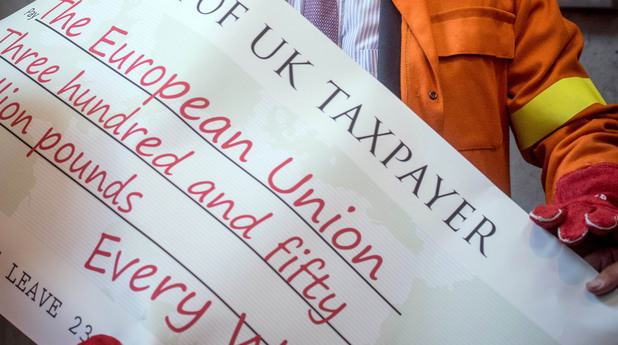 OF UK TAXPAYER
Pay The European Union
Three hundred and fifty
pounds
Every
LEAVE 23